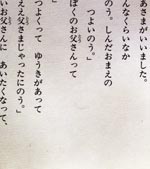 あさまがいいました。
んなくらいなか
のう。しんだおまえの
つよいのう。」
ぼくのお父さんって
」
つよくって ゆうきがあって
ええ父さまじゃったにのう。」
いお父さんに あいたくなって、